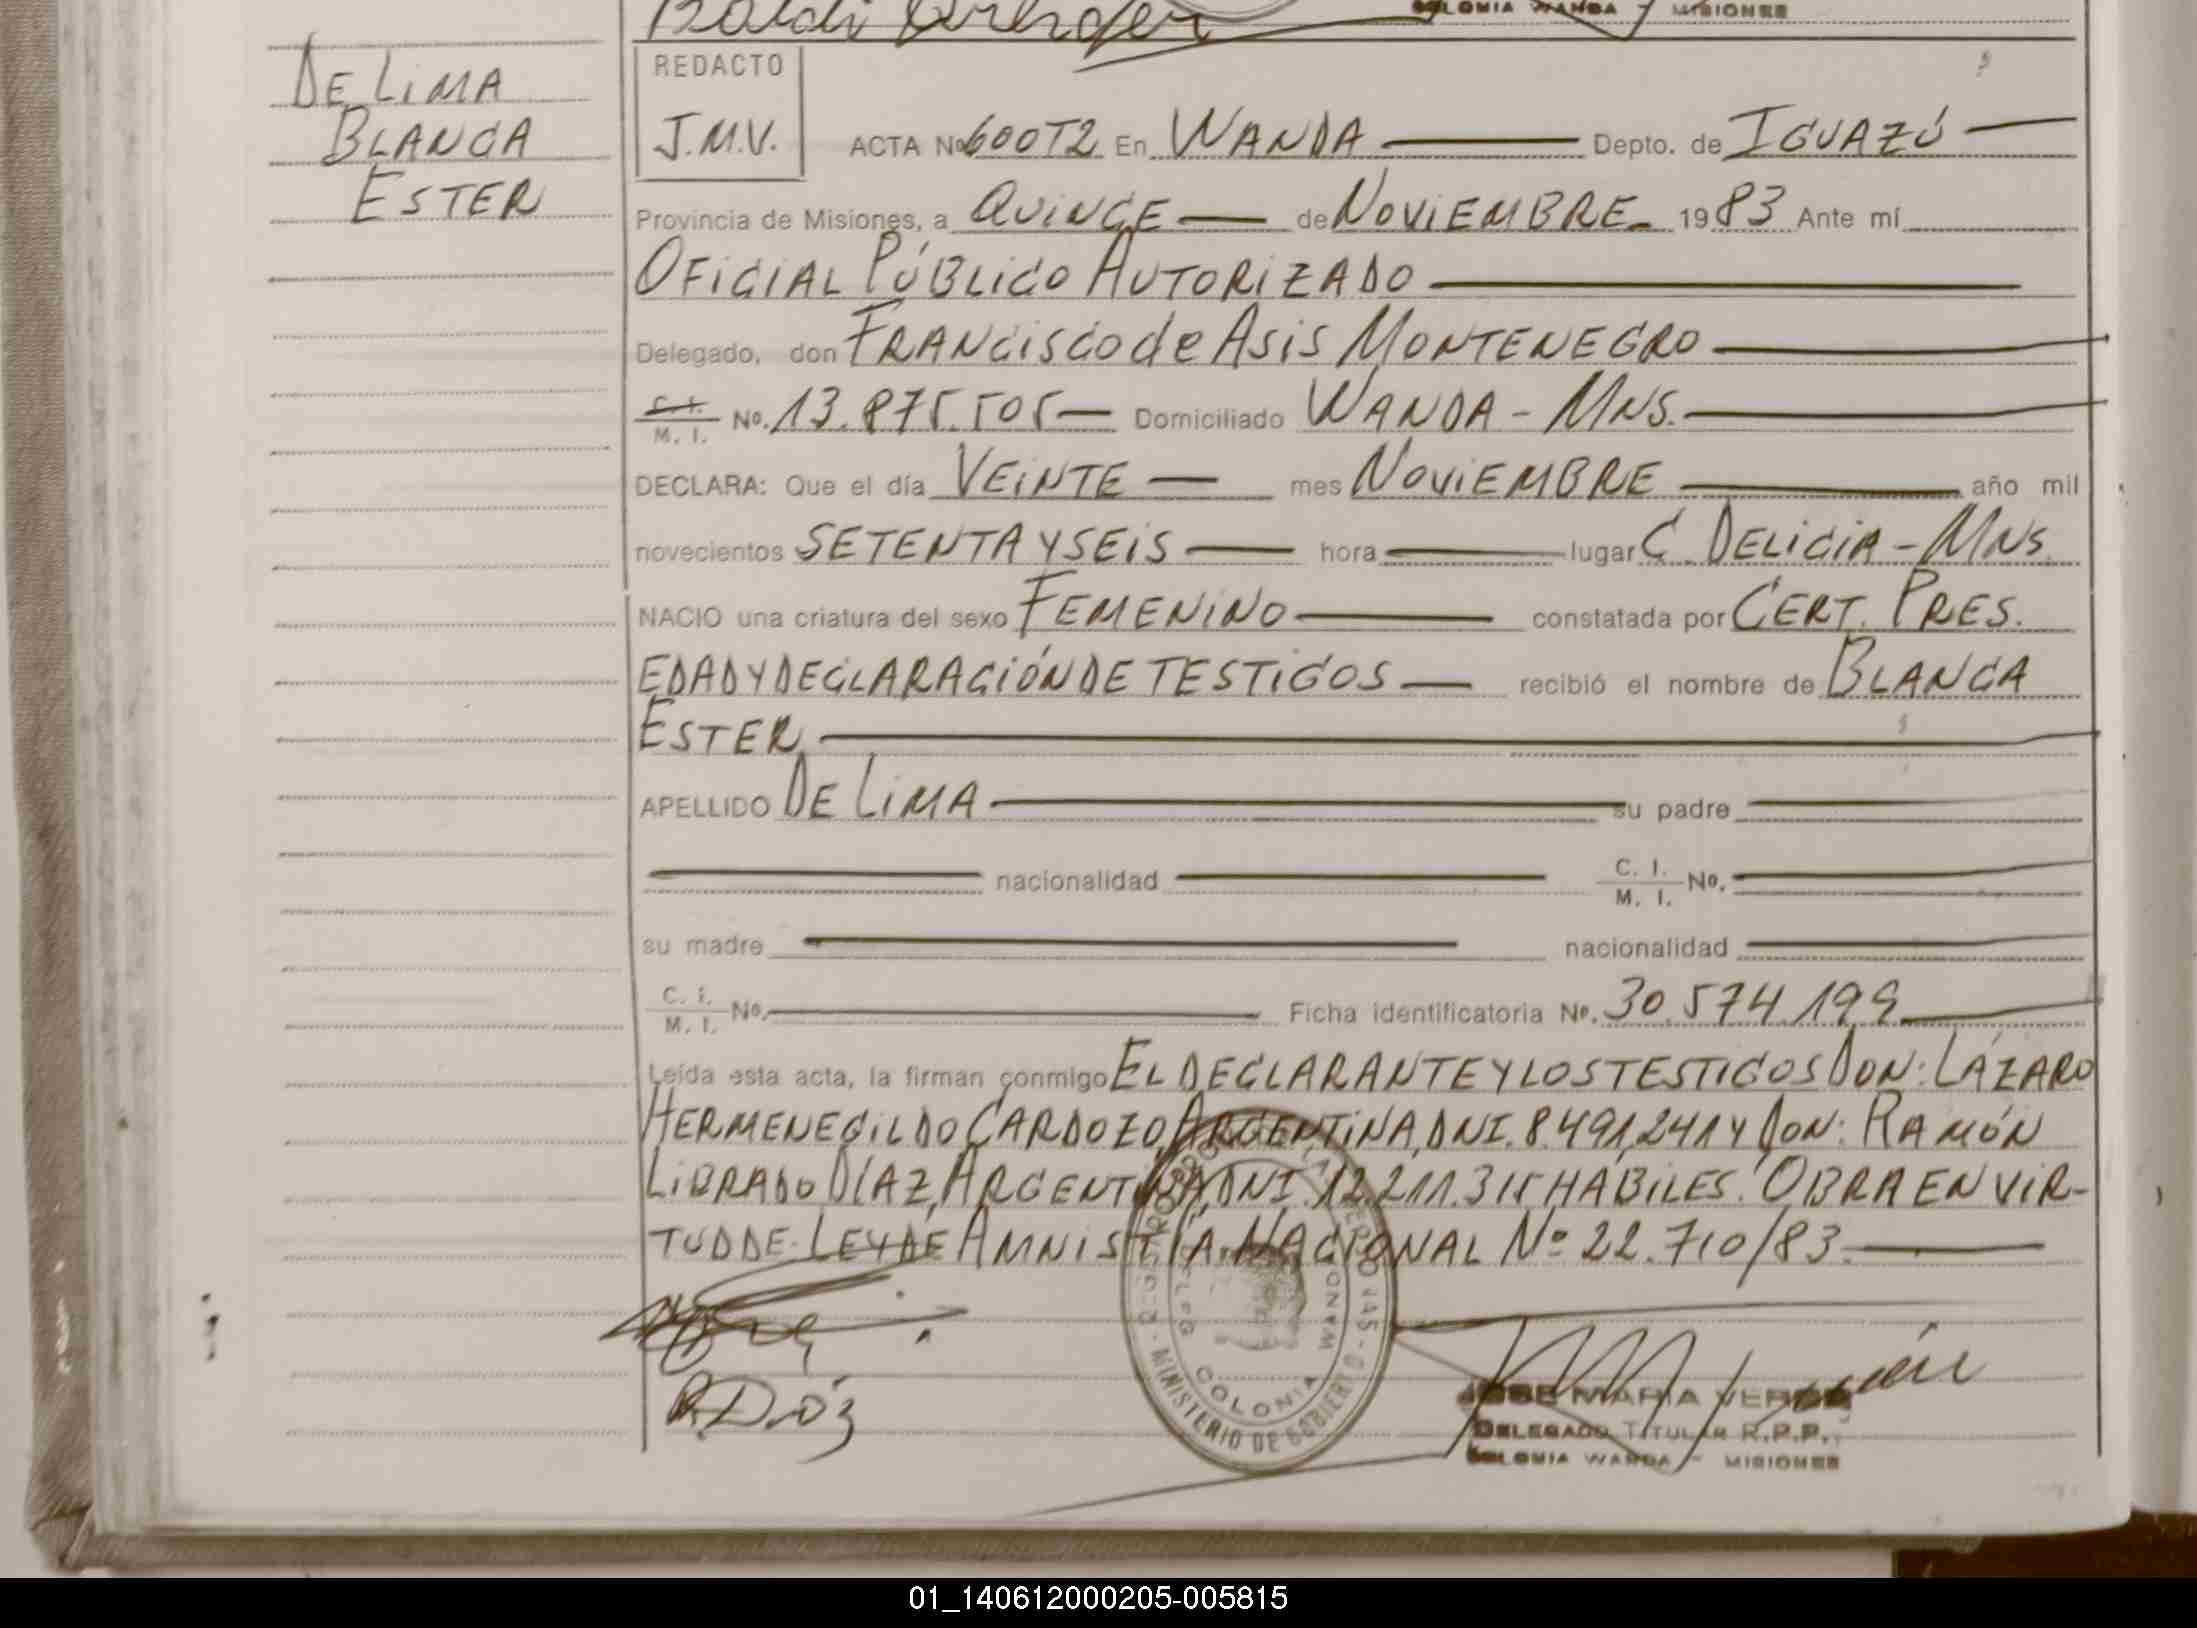 COLONIA WANDA - MISIONES
DE LIMA
BLANCA
ESTER
REDACTO
J.M.V.
ACTA Nº 600T2 En WANDA Depto. de IGUAZÚ
Provincia de Misiones, a QUINCE de NOVIEMBRE 1983 Ante mí
OFICIAL PÚBLICO AUTORIZADO
Delegado, don FRANCISCO de ASIS MONTENEGRO
C. I. / M. I. Nº. 13.875.505 Domiciliado WANDA - MNS.
DECLARA: Que el día VEINTE mes NOVIEMBRE año mil
novecientos SETENTA Y SEIS hora lugar C. DELICIA - MNS.
NACIO una criatura del sexo FEMENINO constatada por CERT. PRES.
EDAD Y DECLARACIÓN DE TESTIGOS recibió el nombre de BLANCA
ESTER
APELLIDO DE LIMA su padre
nacionalidad C. I. / M. I. Nº.
su madre nacionalidad
C. I. / M. I. Nº. Ficha identificatoria Nº. 30.574.199
Leída esta acta, la firman conmigo EL DECLARANTE Y LOS TESTIGOS DON: LÁZARO
HERMENEGILDO CARDOZO, ARGENTINA, DNI. 8.491.241 Y DON: RAMÓN
LIBRADO DÍAZ, ARGENTINA, DNI. 12.211.315 HÁBILES. OBRA EN VIR-
TUD DE LEY DE AMNISTÍA NACIONAL Nº 22.710/83.
R. Diaz
MINISTERIO DE GOBIERNO
COLONIA WANDA
JOSE MARIA
DELEGADO TITULAR R.P.P.
COLONIA WANDA - MISIONES
01_140612000205-005815